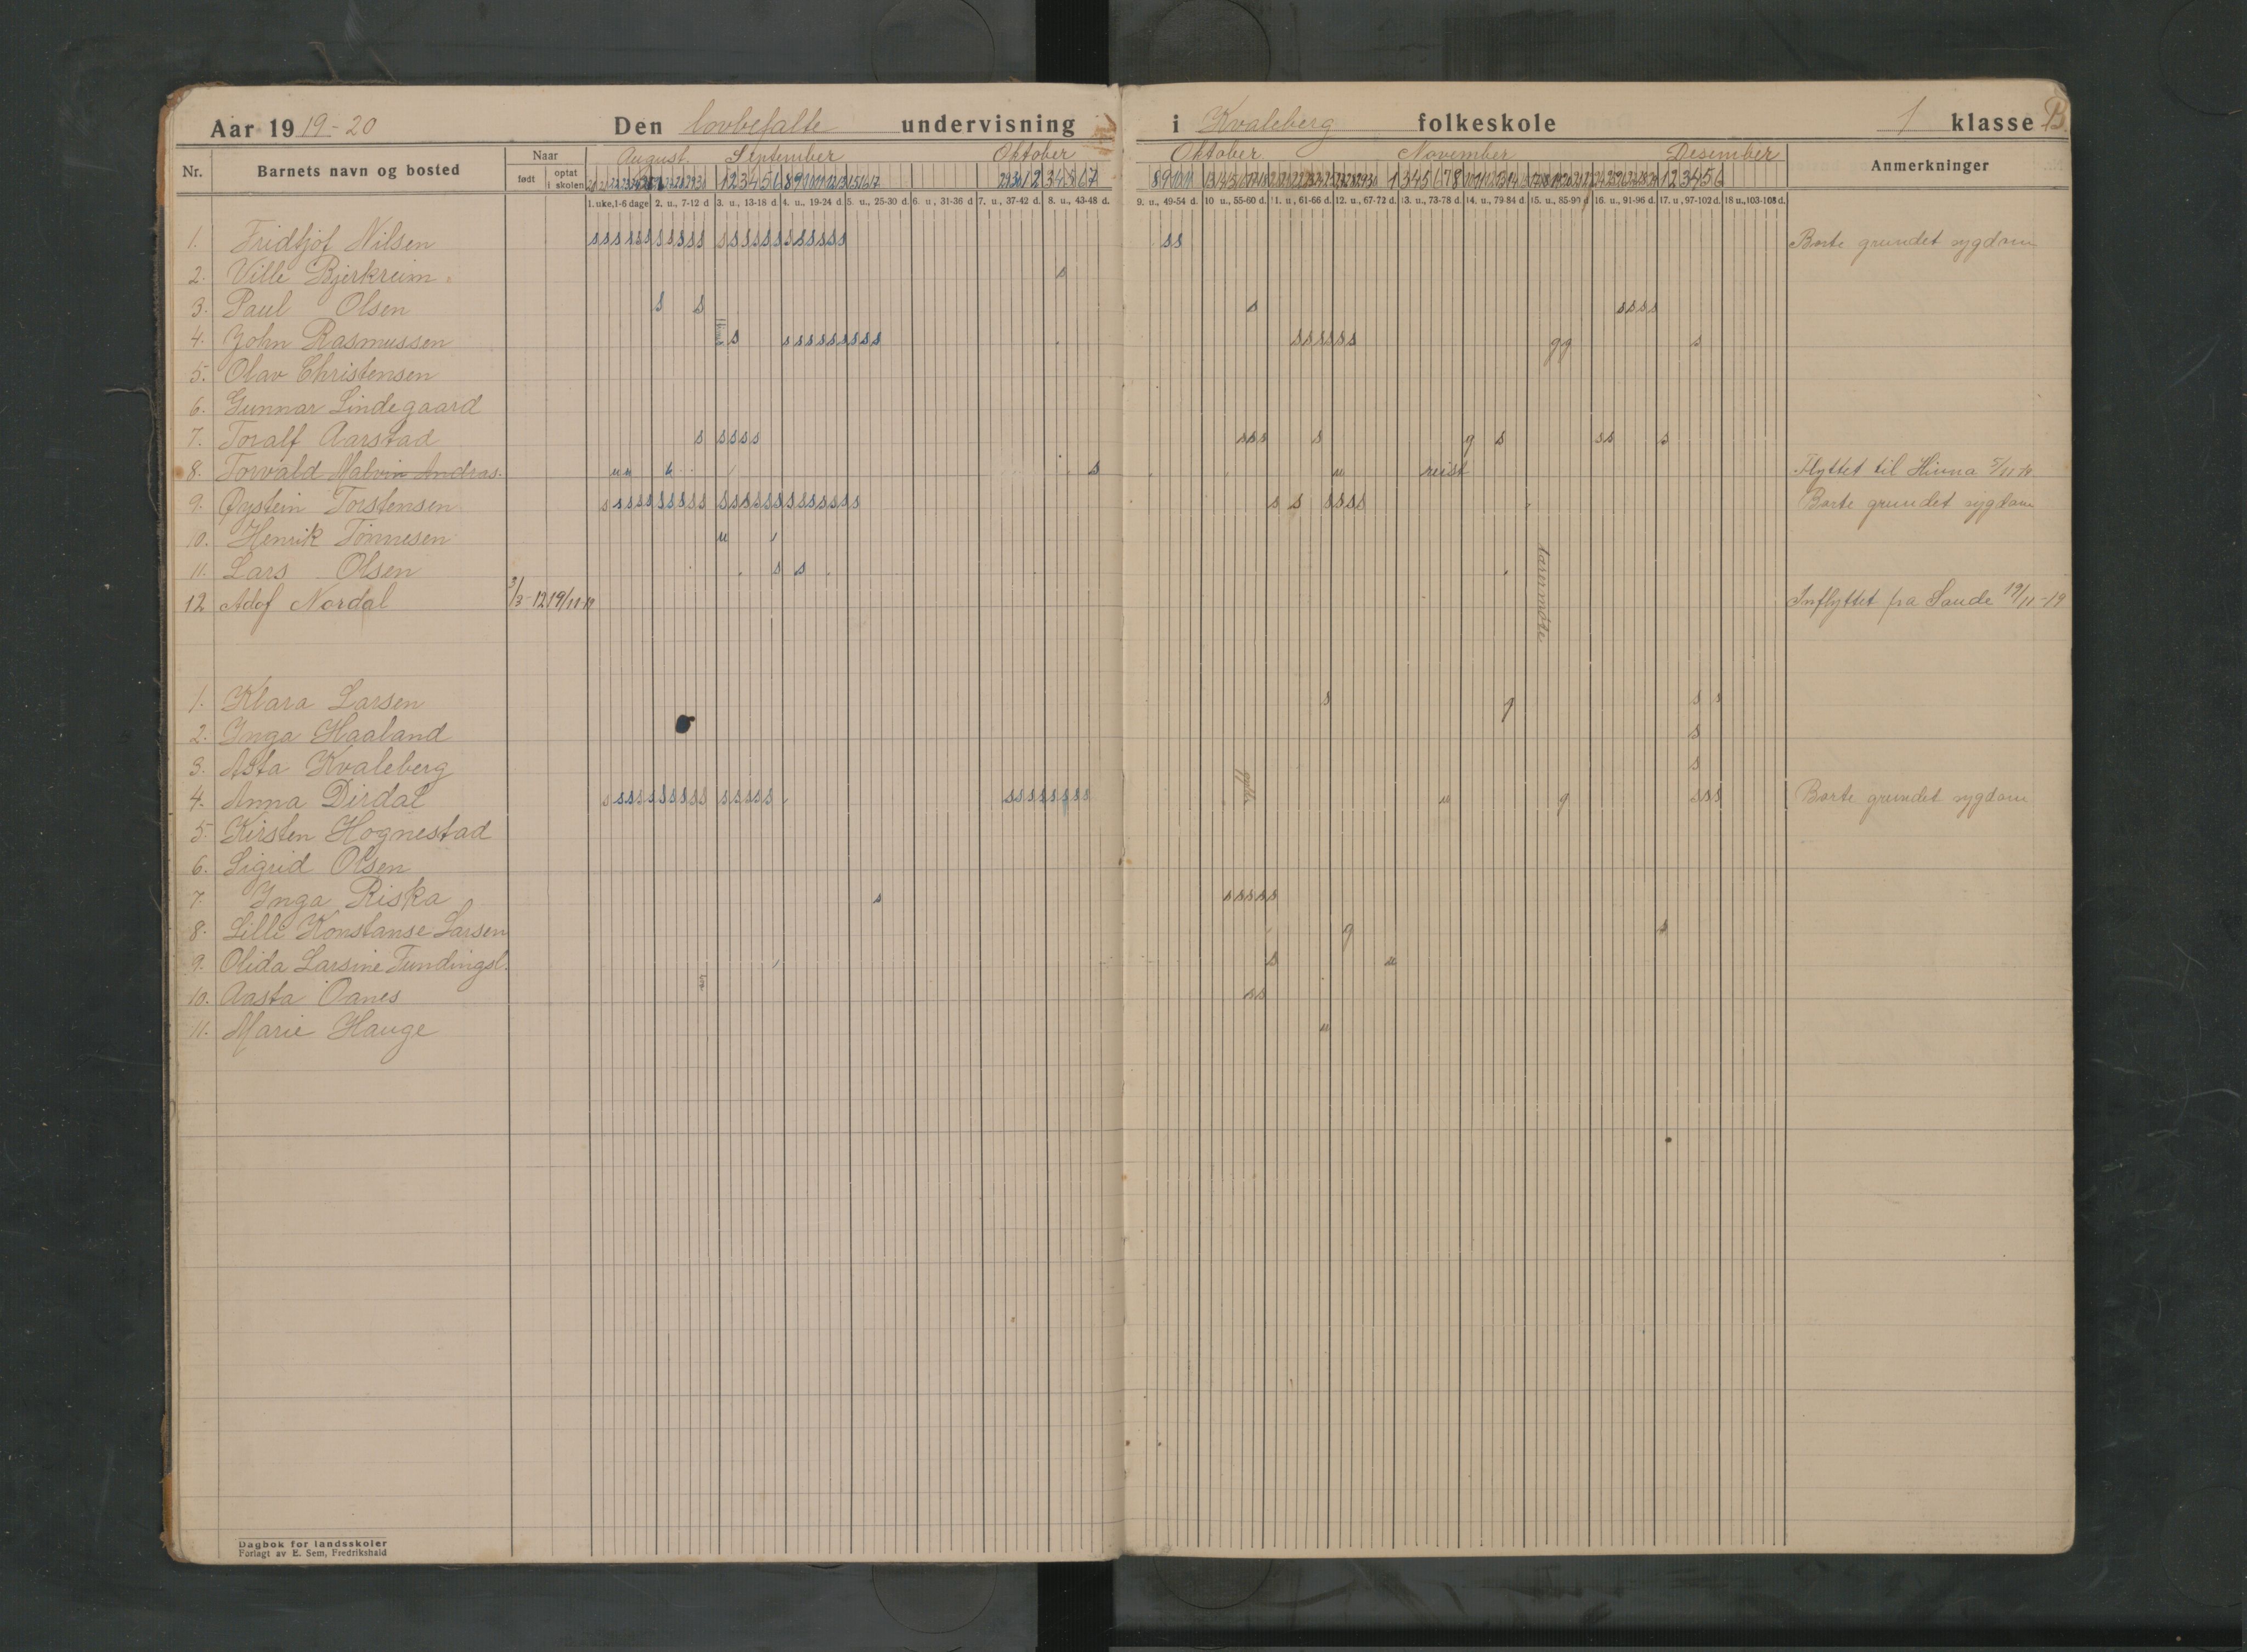 Aar 1919-20 Den lovbefalte undervisning i Kvaleberg folkeskole 1 klasse B.
Nr. Barnets navn og bosted Naar født optat i skolen August. September Oktober Oktober November Desember Anmerkninger
1. uke, 1-6 dage 2. u., 7-12 d 3. u., 13-18 d 4. u., 19-24 d. 5. u., 25-30 d. 6. u., 31-36 d 7. u., 37-42 d. 8. u., 43-48 d. 9. u., 49-54 d. 10 u., 55-60 d. 11. u., 61-66 d. 12. u., 67-72 d. 13. u., 73-78 d. 14. u., 79-84 d. 15. u., 85-90 d 16. u., 91-96 d. 17. u., 97-102 d. 18 u., 103-108 d.
1. Fridtjof Nilsen sssssssssss ssssssssssss ss Borte grundet sygdom
2. Ville Bjerkreim s
3. Paul Olsen s s s ssss
4. John Rasmussen s sssssssss ssssss gg s
5. Olav Christensen
6. Gunnar Lindegaard
7. Toralf Aarstad s ssss sss s g s ss s
8. Torvald Malvin Andras. uu s u reist Flyttet til Hinna 5/11 19
9. Øystein Torstensen ssssssssss sssssssssssss s s ssss Borte grundet sygdom
10. Henrik Tønnesen u
11. Lars Olsen s s
12 Adof Nordal 3/3-12 19/11-19 Inflyttet fra Sande 19/11-19
1. Klara Larsen s g s s
2. Inga Haaland s
3. Asta Kvaleberg s
4. Anna Dirdal ssssssssss sssss ssssssss u g sss Borte grundet sygdom
5. Kirsten Hognestad
6. Sigrid Olsen
7. Inga Riska s sssss
8. Lille Konstanse Larsen g s
9. Olida Larsine Tundingsl. s u
10. Aasta Oanes ss
11. Marie Hauge u
Dagbok for landsskoler
Forlagt av E. Sem, Fredrikshald